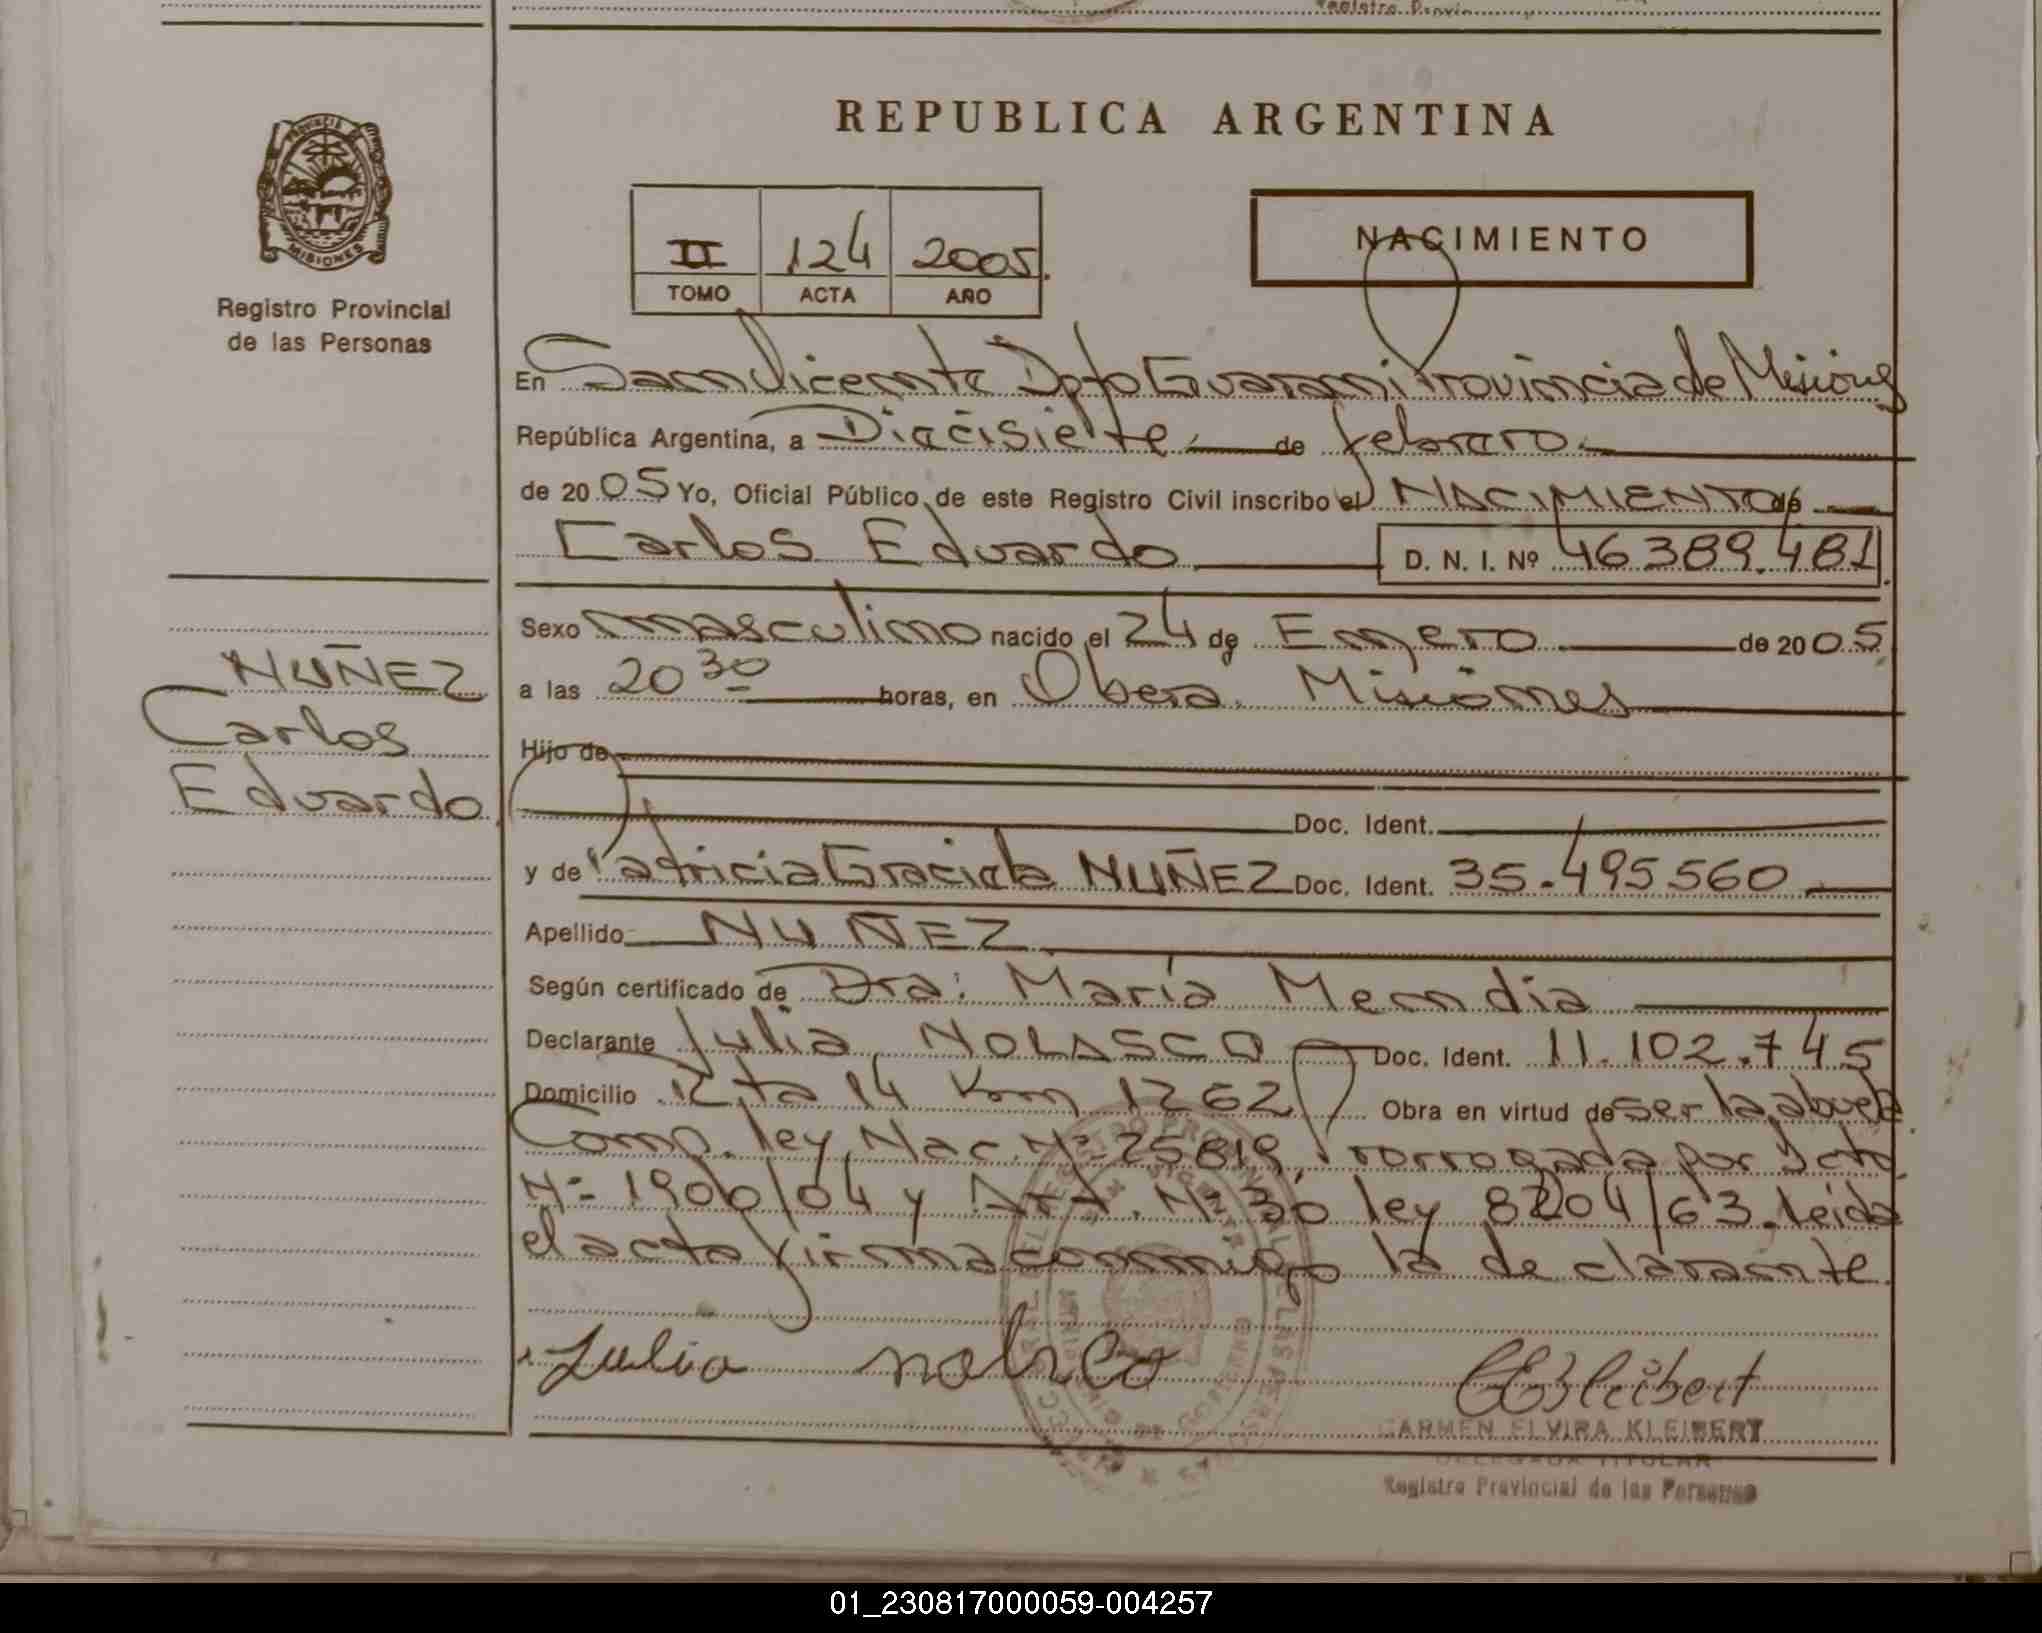 Registro Provin
REPUBLICA ARGENTINA
PROVINCIA DE
MISIONES
Registro Provincial
de las Personas
II 124 2005.
TOMO ACTA AÑO
NACIMIENTO
En San Vicente Dpto Guarani Provincia de Misiones
República Argentina, a Diecisiete de febrero
de 2005 Yo, Oficial Público de este Registro Civil inscribo el NACIMIENTO de
Carlos Eduardo D. N. I. Nº 46389.481
Sexo masculino nacido el 24 de Enero de 2005
a las 20 30 horas, en Obera. Misiones
NUÑEZ
Carlos
Eduardo
Hijo de
Doc. Ident.
y de Patricia Graciela NUÑEZ Doc. Ident. 35.495560
Apellido NUÑEZ
Según certificado de Dra: María Mendia
Declarante Julia NOLASCO Doc. Ident. 11.102.745
Domicilio Rta 14 Km 1262 Obra en virtud de ser la abuela
Comp. ley Nac. Nº 25819, Prorrogada por Dcto
Nº 1900/04 y Art. Nº 30 ley 8204/63. Leida
el acta firma conmigo la declarante.
Julia
CEKleibert
CARMEN ELVIRA KLEIBERT
DELEGADA TITULAR
Registro Provincial de las Personas
01_230817000059-004257